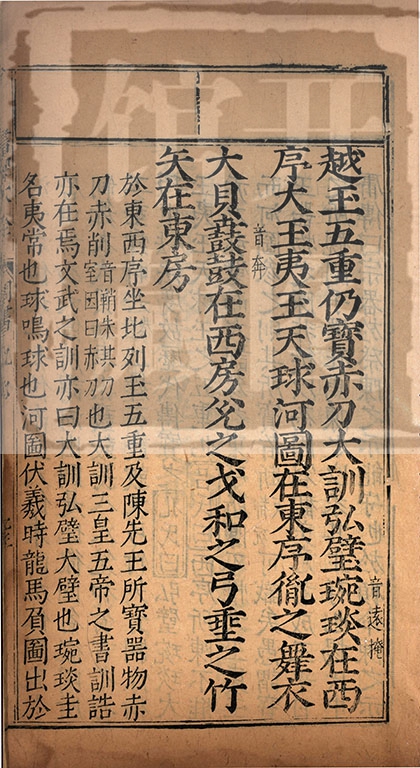 越玉五重仍寶赤刀大訓弘璧琬琰在西
音遠掩
序大玉夷玉天球河圖在東序胤之舞衣
大貝鼖鼓在西房兊之戈和之弓垂之竹
音奔
矢在東房
於東西序坐北列玉五重及陳先王所寶器物赤
刀赤削音鞘朱其刀室因曰赤刀也大訓三皇五帝之書訓誥
亦在焉文武之訓亦曰大訓弘璧大璧也琬琰圭
名夷常也球鳴球也河圖伏羲時龍馬負圖出於